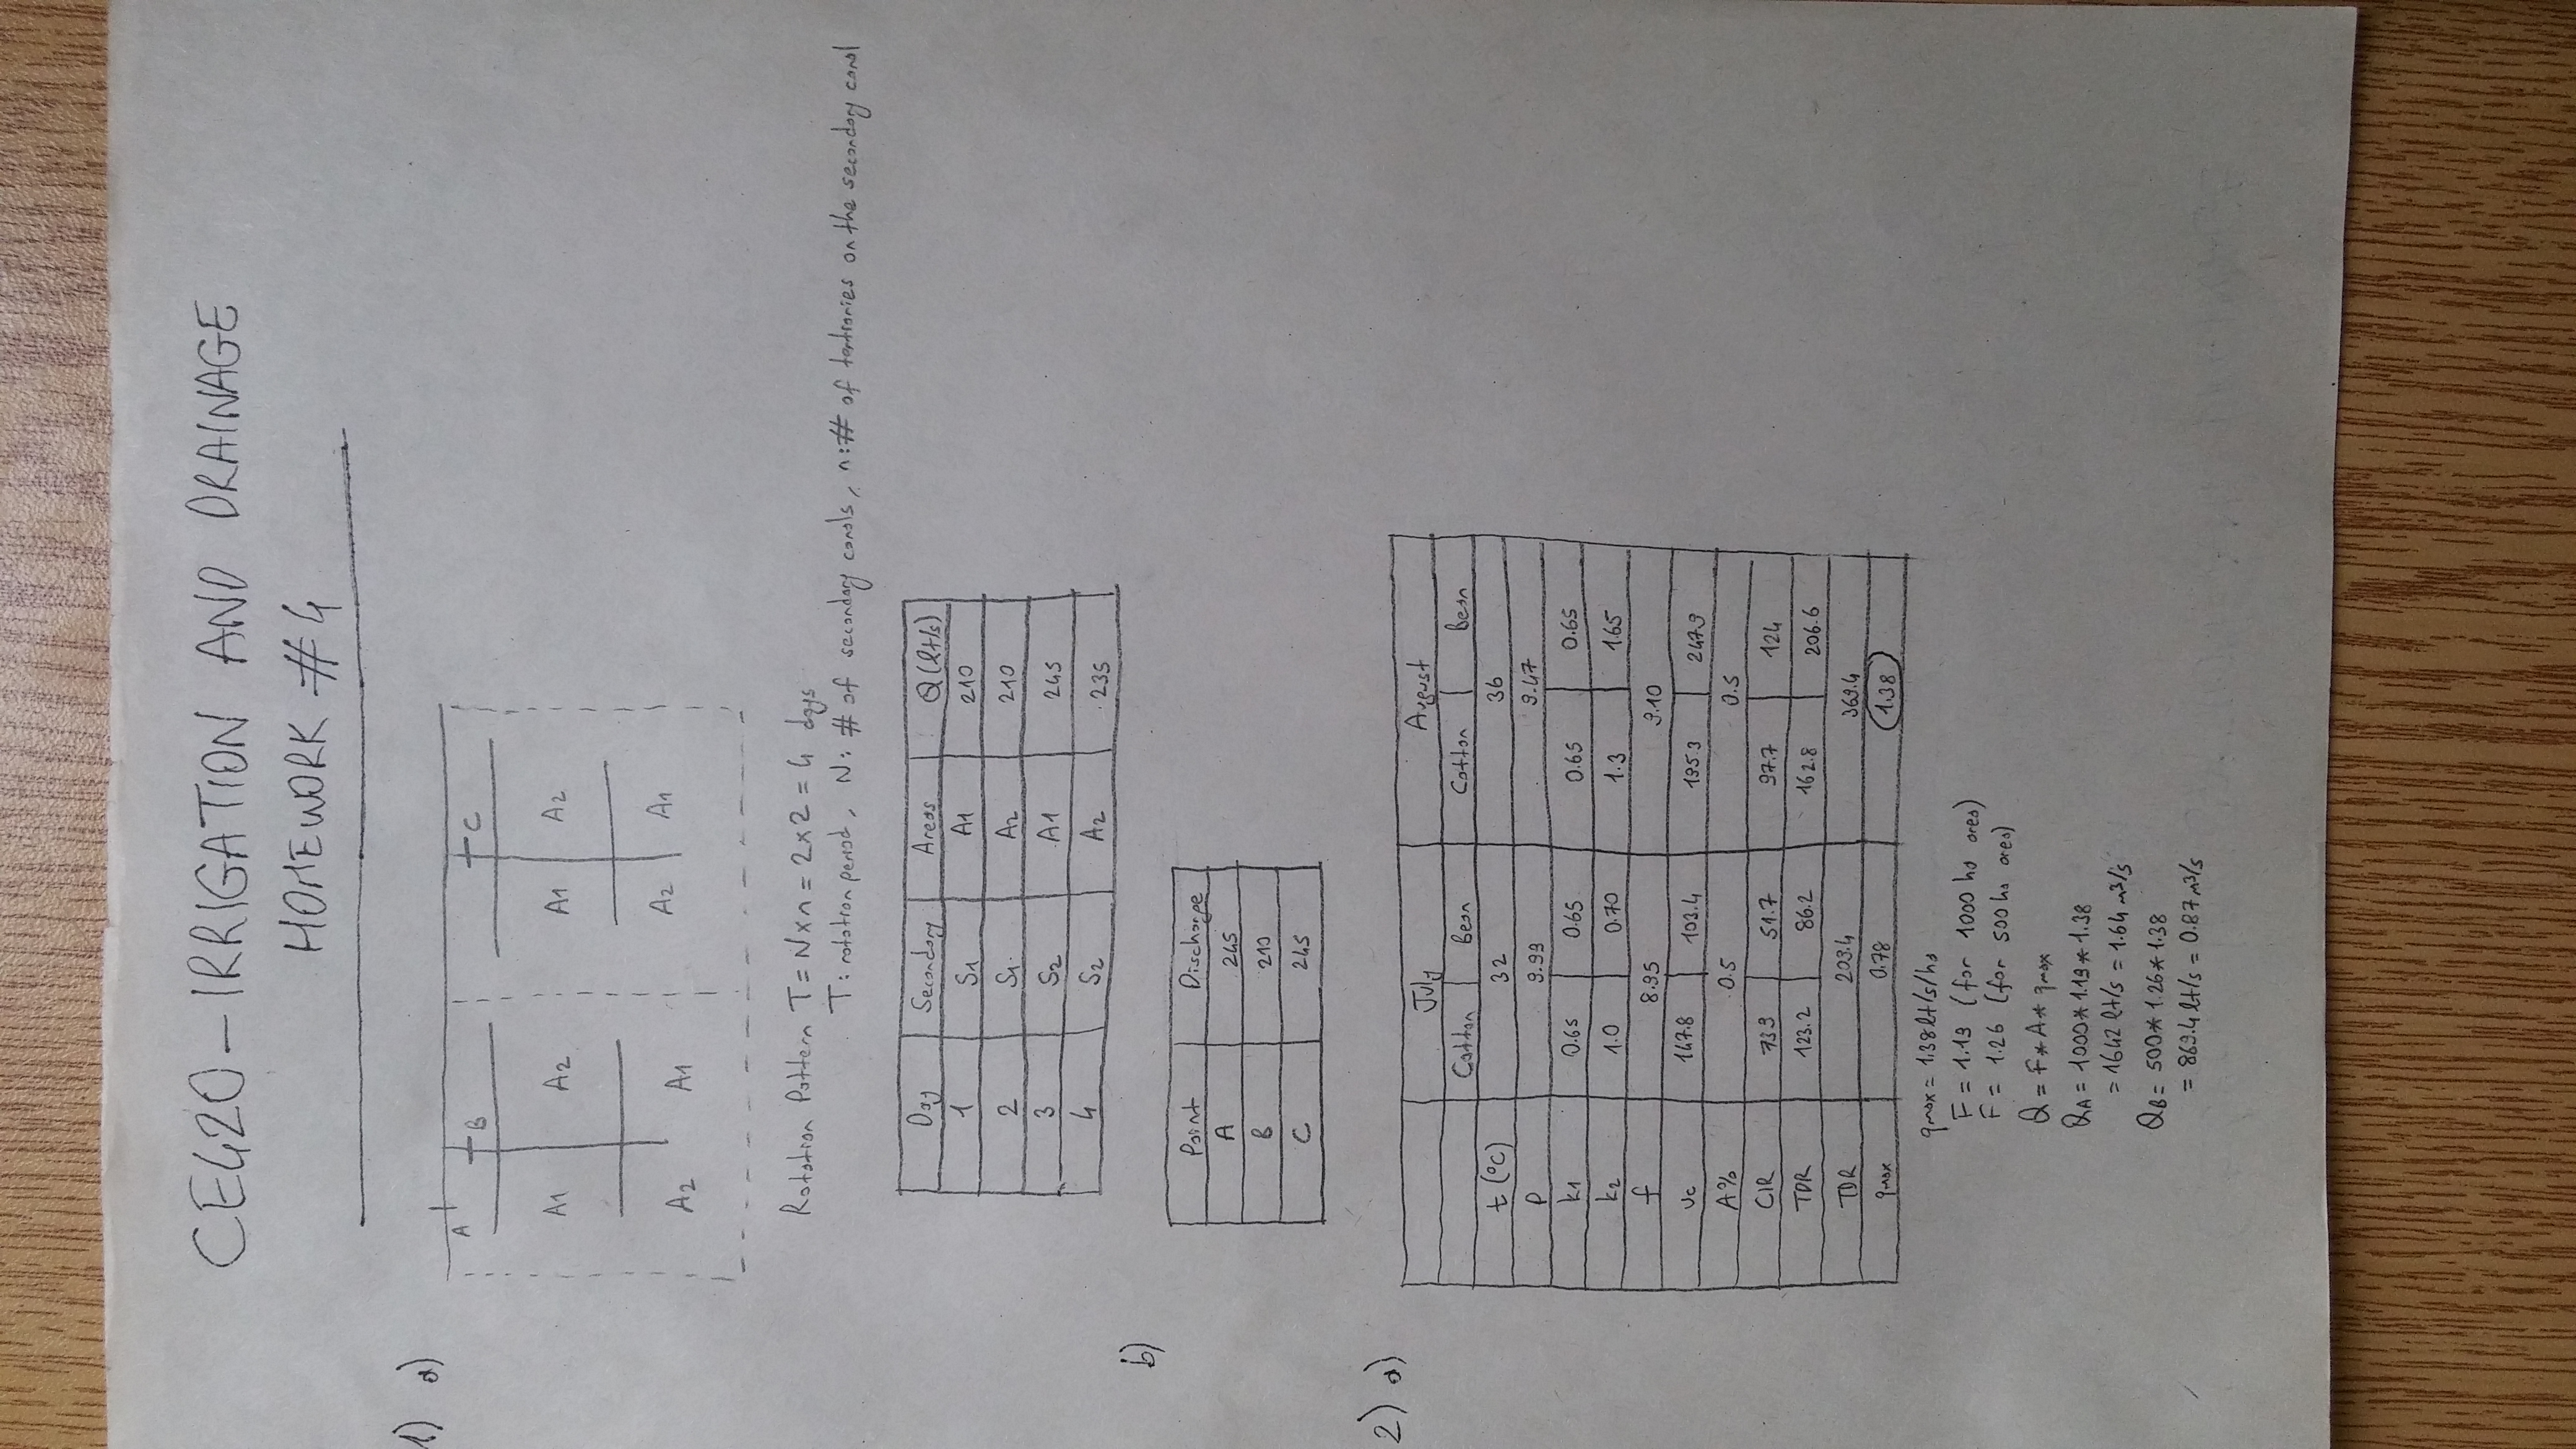 CE420-IRRIGATION AND DRAINAGE
HOMEWORK #4
1) a)
A B C
A1 A2 A1 A2
A2 A1 A2 A1
Rotation Pattern T = N x n = 2 x 2 = 4 days
T: rotation period, N: # of secondary canals, n: # of tertraries on the secondary canal
Day Secondary Areas Q (lt/s)
1 S1 A1 210
2 S1 A2 210
3 S2 A1 245
4 S2 A2 235
b)
Point Discharge
A 245
B 210
C 245
2) a)
July August
Cotton Bean Cotton Bean
t (°C) 32 36
P 9.99 9.47
k1 0.65 0.65 0.65 0.65
k2 1.0 0.70 1.3 1.65
f 8.95 9.10
Uc 147.8 103.4 195.3 247.9
A% 0.5 0.5
CIR 73.9 51.7 97.7 124
TDR 123.2 86.2 162.8 206.6
TDR 209.4 369.4
qmax 0.78 1.38
qmax = 1.38 lt/s/ha
F = 1.19 (for 1000 ha area)
F = 1.26 (for 500 ha area)
Q = F * A * qmax
QA = 1000 * 1.19 * 1.38
= 1642 lt/s = 1.64 m³/s
QB = 500 * 1.26 * 1.38
= 869.4 lt/s = 0.87 m³/s